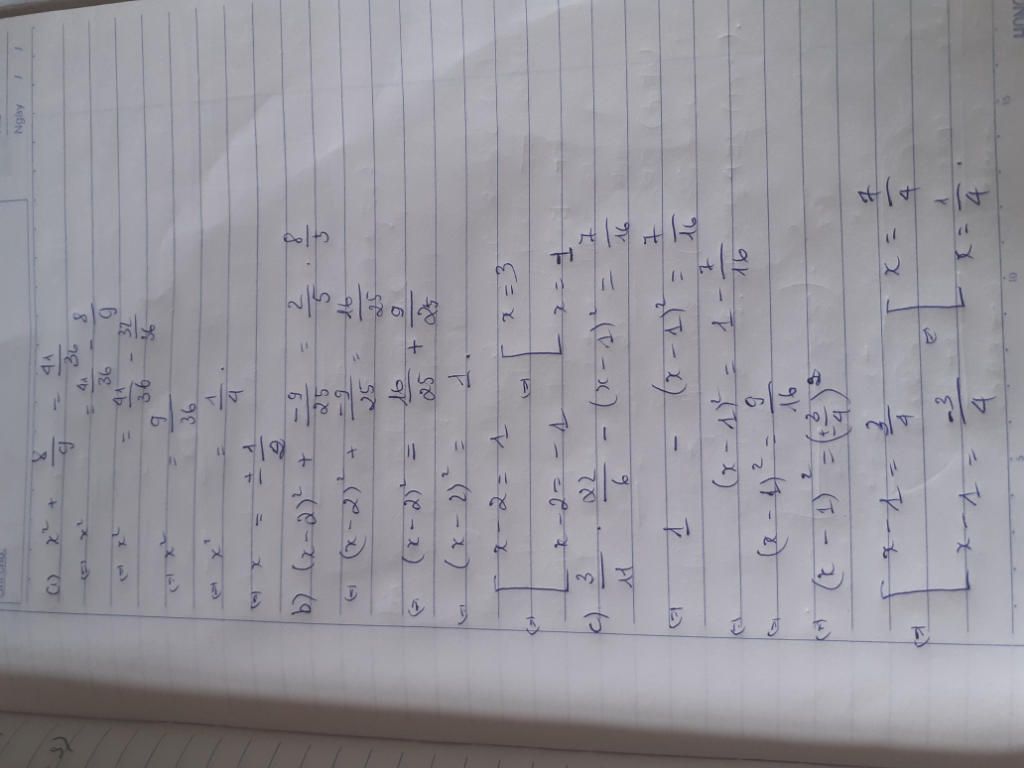 Ngày
a) x² + 8/9 = 41/36
(=) x² = 41/36 - 8/9
(=) x² = 41/36 - 32/36
(=) x² = 9/36
(=) x² = 1/4.
(=) x = ± 1/2
b) (x-2)² + -9/25 = 2/5 . 8/5
(=) (x-2)² + -9/25 = 16/25
(=) (x-2)² = 16/25 + 9/25
(=) (x-2)² = 1.
(=) [ x-2 = 1 (=) [ x = 3
x-2 = -1 x = 1
c) 3/11 . 22/6 - (x-1)² = 7/16
(=) 1 - (x-1)² = 7/16
(=) (x-1)² = 1 - 7/16
(=) (x-1)² = 9/16
(=) (x-1)² = (± 3/4)²
(=) [ x-1 = 3/4 (=) [ x = 7/4
x-1 = -3/4 x = 1/4.